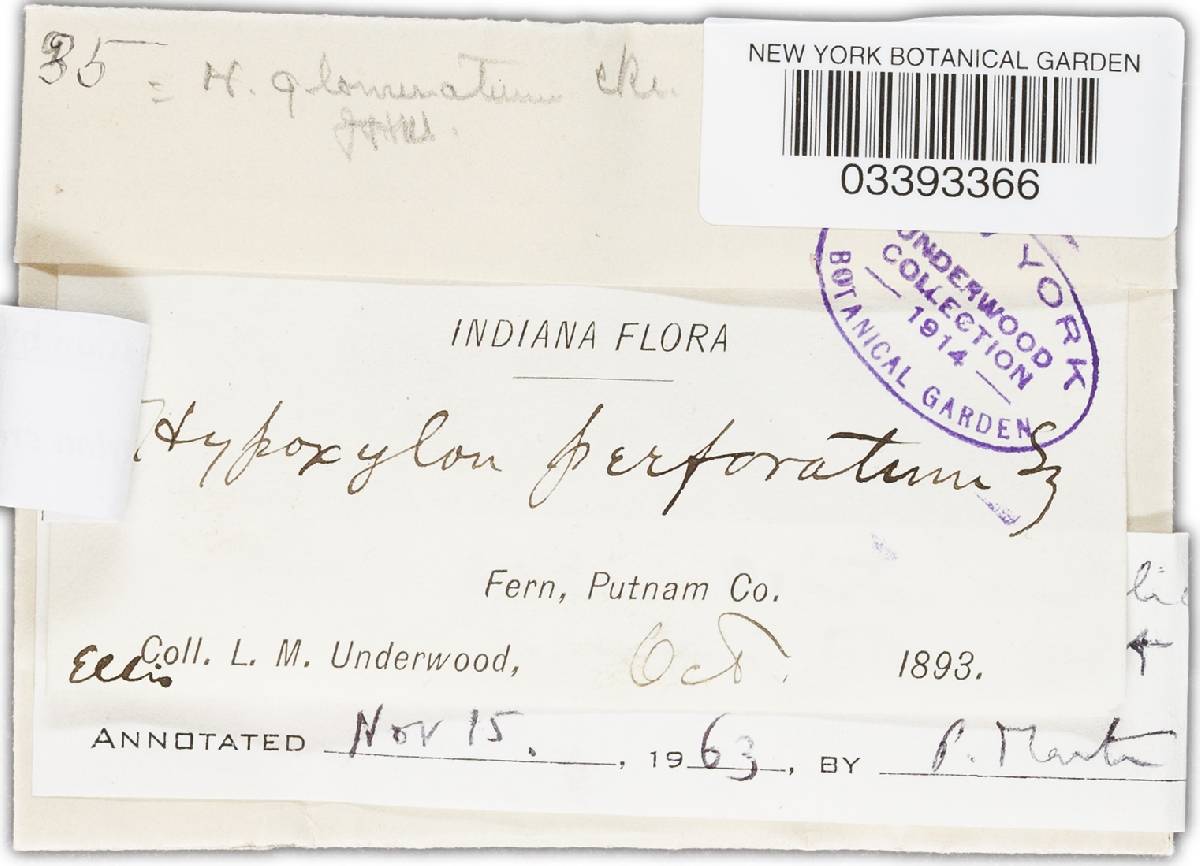 NEW YORK BOTANICAL GARDEN
03393366
35 = H. glomeratum Cke.
YORK
BOTANICAL GARDEN
UNDERWOOD
COLLECTION
1914
INDIANA FLORA
Hypoxylon perforatum Sz
Fern, Putnam Co.
Coll. L. M. Underwood, Oct. 1893.
Ellis
ANNOTATED Nov 15. , 1963, BY P. Martin